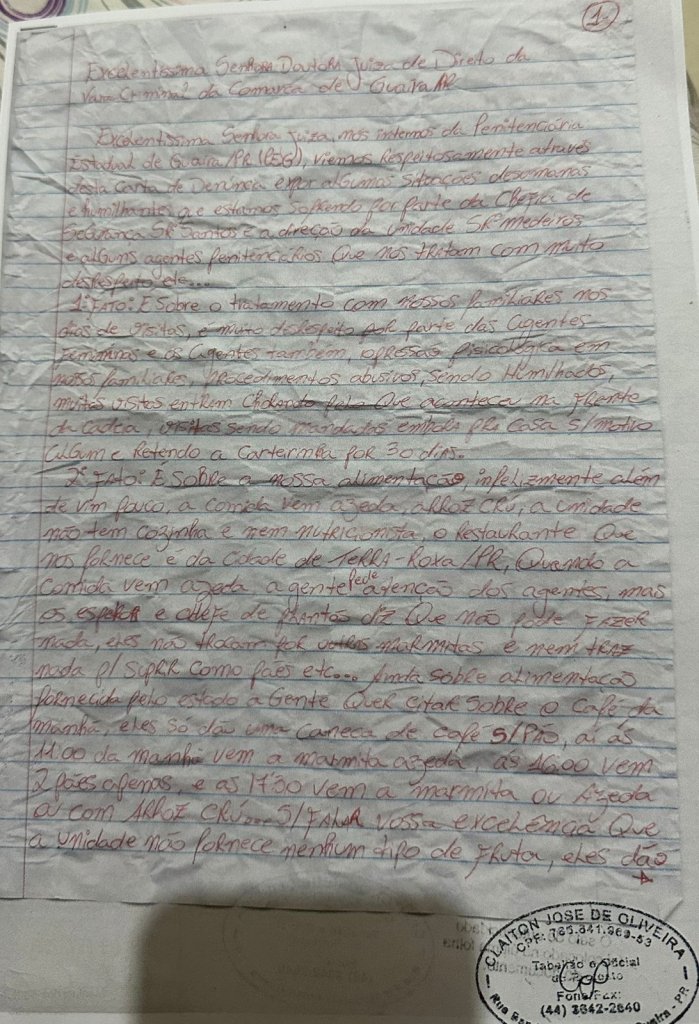 1-
Excelentissima Senhora Doutora Juiza de Direito da
Vara Criminal da Comarca de Guaira PR
Excelentissima Senhora Juiza, nós internos da Penitenciária
Estadual de Guaira/PR (PEG), viemos Respeitosamente através
desta carta de Denúncia expor algumas situações desumanas
e humilhantes que estamos sofrendo por parte da Chefia de
Segurança SR Santos e a direção da unidade SR medeiros
e alguns agentes penitenciários Que nos tratam com muito
desrespeito, etc...
1º FATO: É Sobre o tratamento com nossos familiáres nos
dias de visitas, é muito desrespeito por parte das agentes
Femininas e os agentes também, opressão pisicológica em
nosos familiares, procedimentos abusivos, sendo Humilhados,
muitas visitas entrem chorando pelo Que acontece na frente
da cadea, visitas sendo mandadas embora pra casa s/motivo
algum e Retendo a carterinha por 30 dias.
2º FATO: É SoBRe a nossa alimentação, infelizmente além
de vim pouco, a comida vem azeda, ARROZ CRÚ, a unidade
não tem cozinha e nem nutricionista, o Restaurante Que
nos fornece é da cidade de TeRRA-Roxa/PR, Quando a
comida vem azeda a gente Pede atencão dos agentes, mas
os e chefe de plantão diz Que não pode FAZER
nada, eles não trocam por outras marmitas e nem traz
nada p/ suprir como pães etc... Ainda sobre alimentação
fornecida pelo estado a Gente Quer citar sobre o Café da
manhã, eles só dão uma caneca de café S/Pão, aí ás
11:00 da manhã vem a marmita azeda, ás 16:00 vem
2 pães apenas, e as 17:30 vem a marmita ou Azeda
ou com ARROZ CRÚ... S/FALAR vossa excelência Que
a unidade não fornece nenhum tipo de Fruta, eles dão
CLAITON JOSE DE OLIVEIRA
Tabelião e Oficial
de Protesto
Fone/Fax:
(44) 3642-2640